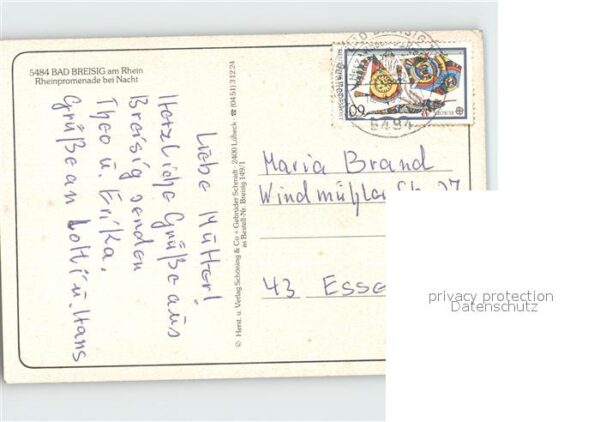 5484 BAD BREISIG am Rhein
Rheinpromenade bei Nacht
Liebe Mutter!
Herzliche Grüße aus
Breisig senden
Theo u. Erika.
Grüße an Lotti u. Hans
© Herst. u. Verlag Schöning & Co + Gebrüder Schmidt · 2400 Lübeck · ☎ (0451) 31224
Bestell-Nr. Breisig 149/1
BAD BREISIG
5484
60
Maria Brand
43 Esse
privacy protection
Datenschutz